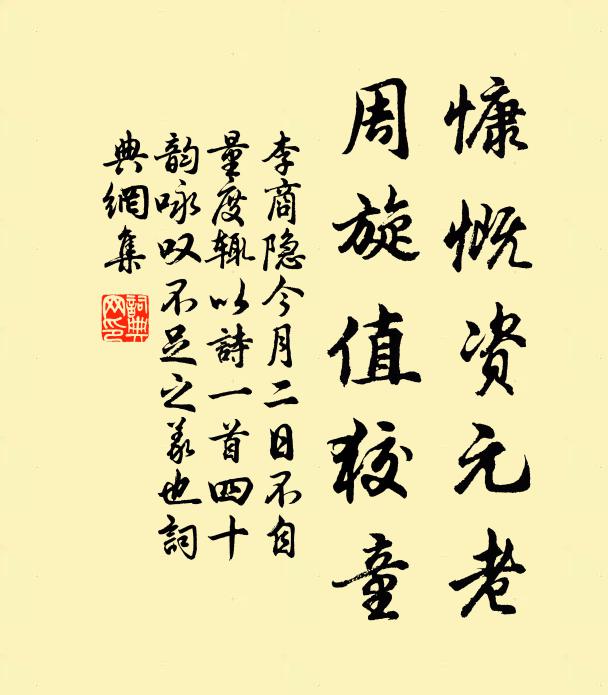 慷慨资元老
周旋值狡童
李商隐今月二日不自
量度辄以詩一首四十
韵咏叹不足之义也詞
典網集
詞典
网印